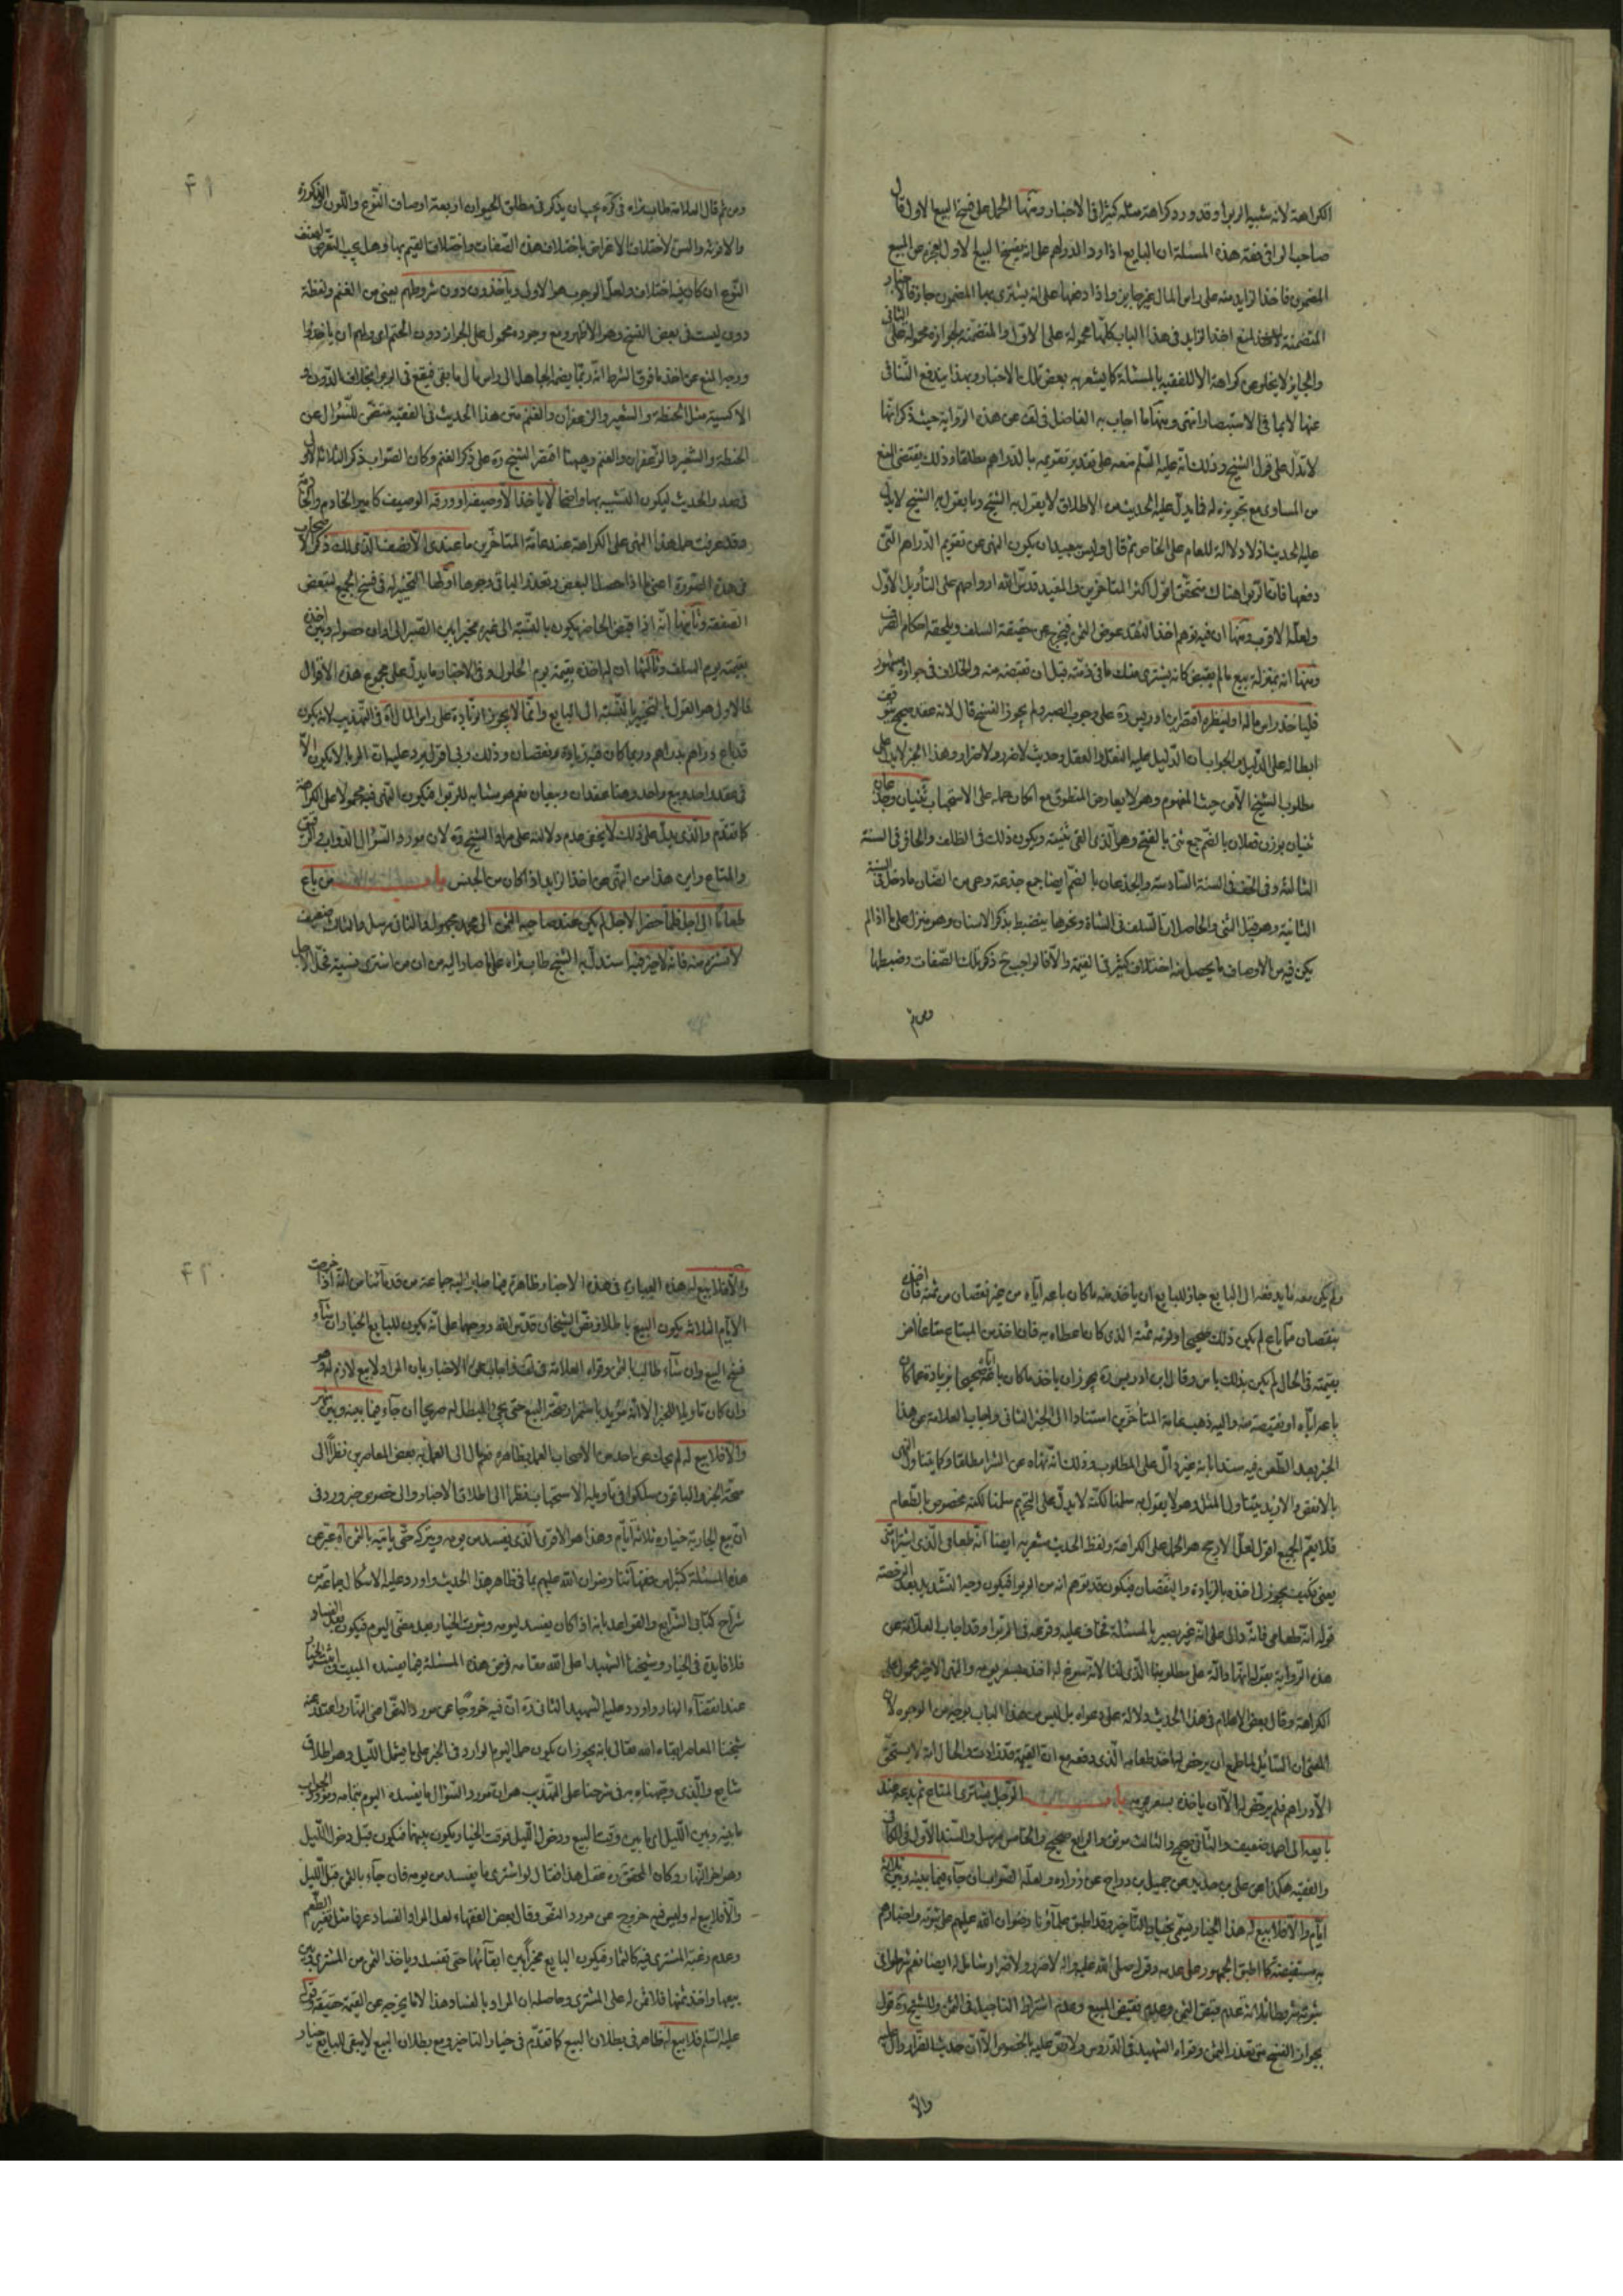 الكراهة لانه شبيه الربوا وقد ورد كراهة مثله كثيرا في الاخبار ومنها الحمل على فسخ البيع الاول قال
صاحب الوافي فقه هذه المسئلة ان البايع اذا رد الدراهم على انه يفسخ البيع الاول لعجزه عن المبيع
المضمون فاخذ الزايد منه على راس المال غير جايز واذا دفعها على انه يشترى بها المضمون جاز فالاخبار
المتضمنة لمنع اخذ الزايد في هذا الباب كلها محمولة على الاول والمتضمنة لجوازه محمولة على الثاني
والجايز لا يخلو عن كراهة الا للفقيه بالمسئلة كما يشعر به بعض تلك الاخبار وبهذا يندفع التنافي
عنها لا بما في الاستبصار انتهى ومنها ما اجاب به الفاضل في لف عن هذه الرواية حيث ذكر انها
لا تدل على قول الشيخ وذلك انه عليه السلم منعه على تقدير تقويمه بالدراهم مطلقا وذلك يقتضى المنع
من المساوى مع تجويزه له فما يدل عليه الحديث من الاطلاق لا يقول به الشيخ وما يقول به الشيخ لا يدل
عليه الحديث اذ لا دلالة للعام على الخاص ثم قال وليس ببعيد ان يكون النهى عن تقويم الدراهم التى
دفعها فان الربوا هناك متحقق اقول اكثر المتاخرين والمفيد قدس الله ارواحهم على التأويل الاول
ولعله الاقرب ومنها ان فيه توهم اخذ النقد عوض الثمن فيخرج عن حقيقة السلف ويلحقه احكام الصرف
ومنها انه بمنزلة بيع ما لم يقبض كانه يشترى منك ما في ذمته قبل ان تقبضه منه والخلاف في جوازه مشهور
فلياخذ راس ماله او لينظره اقتصر ابن ادريس ره على وجوب الصبر ولم يجوز الفسخ قال لانه عقد صحيح يتوقف
ابطاله على الدليل والجواب ان الدليل عليه النقل والعقل وحديث لا ضرر ولا ضرار وهذا الخبر لا يدل على
مطلوب الشيخ الا من حيث المفهوم وهو لا يعارض المنطوق مع امكان حمله على الاستحباب ثنيان وجذعان
ثنيان بوزن فعلان بالضم جمع ثنى بالفتح وهو الذى القى ثنيته ويكون ذلك في الظلف والحافر في السنة
الثالثة وفي الخف في السنة السادسة والجذعان بالضم ايضا جمع جذعة وهى من الضان ما دخل في السنة
الثانية وهو قبل الثنى والحاصل ان السلف في الشاة ونحوها ينضبط بذكر الاسنان وهو منزل على ما اذا لم
يكن فيه من الاوصاف ما يحصل منه اختلاف كثير في القيمة والا فالواجب ح ذكر تلك الصفات وضبطها
ومن ثم
ومن ثم قال العلامة طاب ثراه في كره يجب ان يذكر في مطلق الحيوان اربعة اوصاف النوع واللون والذكورة
والانوثة والسن لاختلاف الاغراض باختلاف هذه الصفات واختلاف القيم بها وهل يجب التعرض لصنف
النوع ان كان فيه اختلاف ولعل الوجوب هو الاولى وياخذون دون شروطهم يعنى من الغنم ولفظة
دون ليست في بعض النسخ وهو الاظهر ومع وجوده محمول على الجواز دون الحتم اى ولهم ان ياخذوا
ووجه المنع عن اخذ ما فوق الشرط انه ربما يضم الجاهل الى راس مال ما بقى فيقع في الربوا بخلاف الدون و
الاكسية مثل الحنطة والشعير والزعفران والغنم متن هذا الحديث في الفقيه متضمن للسؤال عن
الحنطة والشعير والزعفران والغنم وهيهنا اقتصر الشيخ ره على ذكر الغنم وكان الصواب ذكر الثلاثة الاول
في صدر الحديث ليكون التشبيه بها واضحا لا ياخذ الا وصيفا وورقه الوصيف كامير الخادم والخادمة
وقد عرفت حمل هذا النهى على الكراهة عند عامة المتاخرين ما عندى الا نصف الذى لك ذكر الاصحاب
في هذه الصورة اعنى ما اذا حصل البعض وتعذر الباقى وجوها اولها التخيير له في فسخ الجميع لتبعض
الصفقة وثانيها انه اذا قبض الحاضر يكون بالنسبة الى غيره مخيرا بين الصبر الى اوان حصوله وبين اخذه
بقيمته يوم السلف وثالثها ان له اخذه بقيمته يوم الحلول وفي الاخبار ما يدل على مجموع هذه الاقوال
فالاول هو القول بالتخيير بالنسبة الى البايع وانما لا يجوز الزيادة على راس المال اه في التهذيب لانه يكون
قد باع دراهم بدراهم وربما كان فيه زيادة ونقصان وذلك ربى اقول يرد عليه ان الربا لا يكون الا
في عقد واحد وبيع واحد وهنا عقدان وبيعان نعم هو مشابه للربوا فيكون النهى فيه محمولا على الكراهة
كما تقدم والذى يدل على ذلك لا يخفى عدم دلالته على مراد الشيخ ره لان مورد السؤال الدواب والرقيق
والمتاع واين هذا من النهى عن اخذ الزايد اذا كان من الجنس باب من باع
طعاما الى اجل فلما حضر الاجل لم يكن عند صاحبه الثمن الى محمد مجهول والثانى مرسل والثالث ضعيف
لا تشتره منه فانه لا خير فيه استدل به الشيخ طاب ثراه على ما صار اليه من ان من اشترى نسيئة فحل الاجل
ولم يكن معه ما يدفعه الى البايع جاز للبايع ان ياخذ منه ما كان باعه اياه من غير نقصان من ثمنه فان اخذه
بنقصان مما باع لم يكن ذلك صحيحا ولزمه ثمنه الذى كان اعطاه به فان اخذ من المبتاع متاعا اخر
بقيمته في الحال لم يكن بذلك باس وقال ابن ادريس ره يجوز ان ياخذ ما كان باعه اياه صحيحا بزيادة عما كان
باعه اياه او نقيصة منه واليه ذهب عامة المتأخرين استنادا الى الخبر الثانى واجاب العلامة عن هذا
الخبر بعد الطعن فيه سندا بانه غير دال على المطلوب وذلك انه نهاه عن الشرا مطلقا وكما يتناول النهى
بالانقص والازيد يتناول المثل وهو لا يقول به سلمنا لكنه لا يدل على التحريم سلمنا لكنه مخصوص بالطعام
فلا يتم الجميع اقول لعل الارجح هو الحمل على الكراهة ولفظ الحديث مشعر به ايضا انه طعامى الذى اشتراه منى
يعنى فكيف يجوز لى اخذه بالزيادة والنقصان فيكون قد توهم انه من الربوا فيكون وجه التشديد بعد الرخصة
قوله انه طعامى فانه دال على انه غير بصير بالمسئلة فخاف عليه وقوعه في الربوا وقد اجاب العلامة عن
هذه الرواية بقوله انها دالة على مطلوبنا الذى قلنا لانه سوغ له اخذه بسعر يومه والنهى الاخير محمول على
الكراهة وقال بعض الاعلام في هذا الحديث دلالة على دعواه بل ليس من هذا الباب بوجه من الوجوه لان
المعنى ان السائل لما طمع ان يرخص له اخذ طعامه الذى دفعه مع ان القيمة قد زادت والحال انه لا يستحق
الا دراهم فلم يرخص له الا ان ياخذه بسعر يومه باب الرجل يشترى المتاع ثم يدعه عند
بايعه الى اجل ضعيف والثانى صحيح والثالث موثق والرابع صحيح والخامس مرسل والسند الاول في الكافى
والفقيه هكذا عن على بن حديد عن جميل بن دراج عن زرارة ولعله الصواب ان جاء فيما بينه وبين ثلاثة
ايام والا فلا بيع له هذا الخيار يسمى بخيار التأخير وقد اطبق علمآؤنا رضوان الله عليهم على ثبوته واخبارهم
به مستفيضة كما اطبق الجمهور على عدمه وقوله صلى الله عليه واله لا ضرر ولا ضرار شامل له ايضا نعم شرطوا في
ثبوته شروطا ثلاثة عدم قبض الثمن وعدم تقبيض المبيع وعدم اشتراط التاجيل في الثمن وللشيخ ره قول
بجواز الفسخ متى تعذر الثمن وقواه الشهيد في الدروس ولا نص عليه بالخصوص الا ان حديث الضرار دال عليه
والا
والا فلا بيع له هذه العبارة في هذه الاخبار ظاهرة فيما صار اليه جماعة من قدمآئنا من انه اذا خرجت
الايام الثلاثة يكون البيع باطلا ونص الشيخان قدس الله روحهما على انه يكون للبايع الخيار ان شآء
فسخ البيع وان شآء طالب بالثمن وقواه العلامة في لف واجاب عن الاخبار بان المراد لا بيع لازم له وهو
وان كان تاويلا للخبر الا انه مؤيد باستمرار صحة البيع حتى يجئ المبطل له صريحا ان جآء فيما بينه وبين شهر
والا فلا بيع له لم يحك عن احد من الاصحاب العمل بظاهره نعم مال الى العمل به بعض المعاصرين نظرا الى
صحة الخبر والباقون سلكوا في تأويله الاستحباب نظرا الى اطلاق الاخبار والى خصوص خبر ورد في
ان بيع الجارية خياره ثلاثة ايام وهذا هو الاقوى الذى يفسد من يومه ويتركه حتى ياتيه بالثمن اه عبر عن
هذه المسئلة كثير من فقهآئنا رضوان الله عليهم بما في ظاهر هذا الحديث واورد عليه الاشكال جماعة من
شراح كتابى الشرايع والقواعد بانه اذا كان يفسد ليومه وثبوت الخيار بعد مضى اليوم فيكون بعد الفساد
فلا فايدة في الخيار وشيخنا الشهيد اعلى الله مقامه فرض هذه المسئلة فيما يفسده المبيت واثبت الخيار
عند انقضآء النهار واورد عليه الشهيد الثانى ره ان فيه خروجا عن مورد النص اعنى النهار واعتذر عنه
شيخنا المعاصر ابقاه الله تعالى بانه يجوز ان يكون حمل اليوم الوارد في الخبر على ما يشمل الليل وهو اطلاق
شايع والذى وجهناه به في شرحنا على التهذيب هو ان مورد السؤال ما يفسده اليوم بتمامه ومورد الجواب
ما بينه وبين الليل اى ما بين وقت البيع ودخول الليل فوقت الخيار يكون بينهما فيكون قبل دخول الليل
وهو اخر النهار وكان المحقق ره عقل هذا فقال لو اشترى ما يفسد من يومه فان جآء بالثمن قبل الليل
والا فلا بيع له وليس فيه خروج عن مورد النص وقال بعض الفقهاء لعل المراد الفساد عرفا مثل تغير الطعم
وعدم رغبة المشترى فيه كالثمار فيكون البايع مخيرا بين ابقآئها حتى تفسد وياخذ الثمن من المشترى وبين
بيعها واخذ ثمنها فلا ثمن له على المشترى وحاصله ان المراد بالفساد هذا لا ما يخرجه عن القيمة حقيقة وقوله
عليه السلم فلا بيع له ظاهر في بطلان البيع كما تقدم في خيار التاخير ومع بطلان البيع لا يبقى للبايع خيار